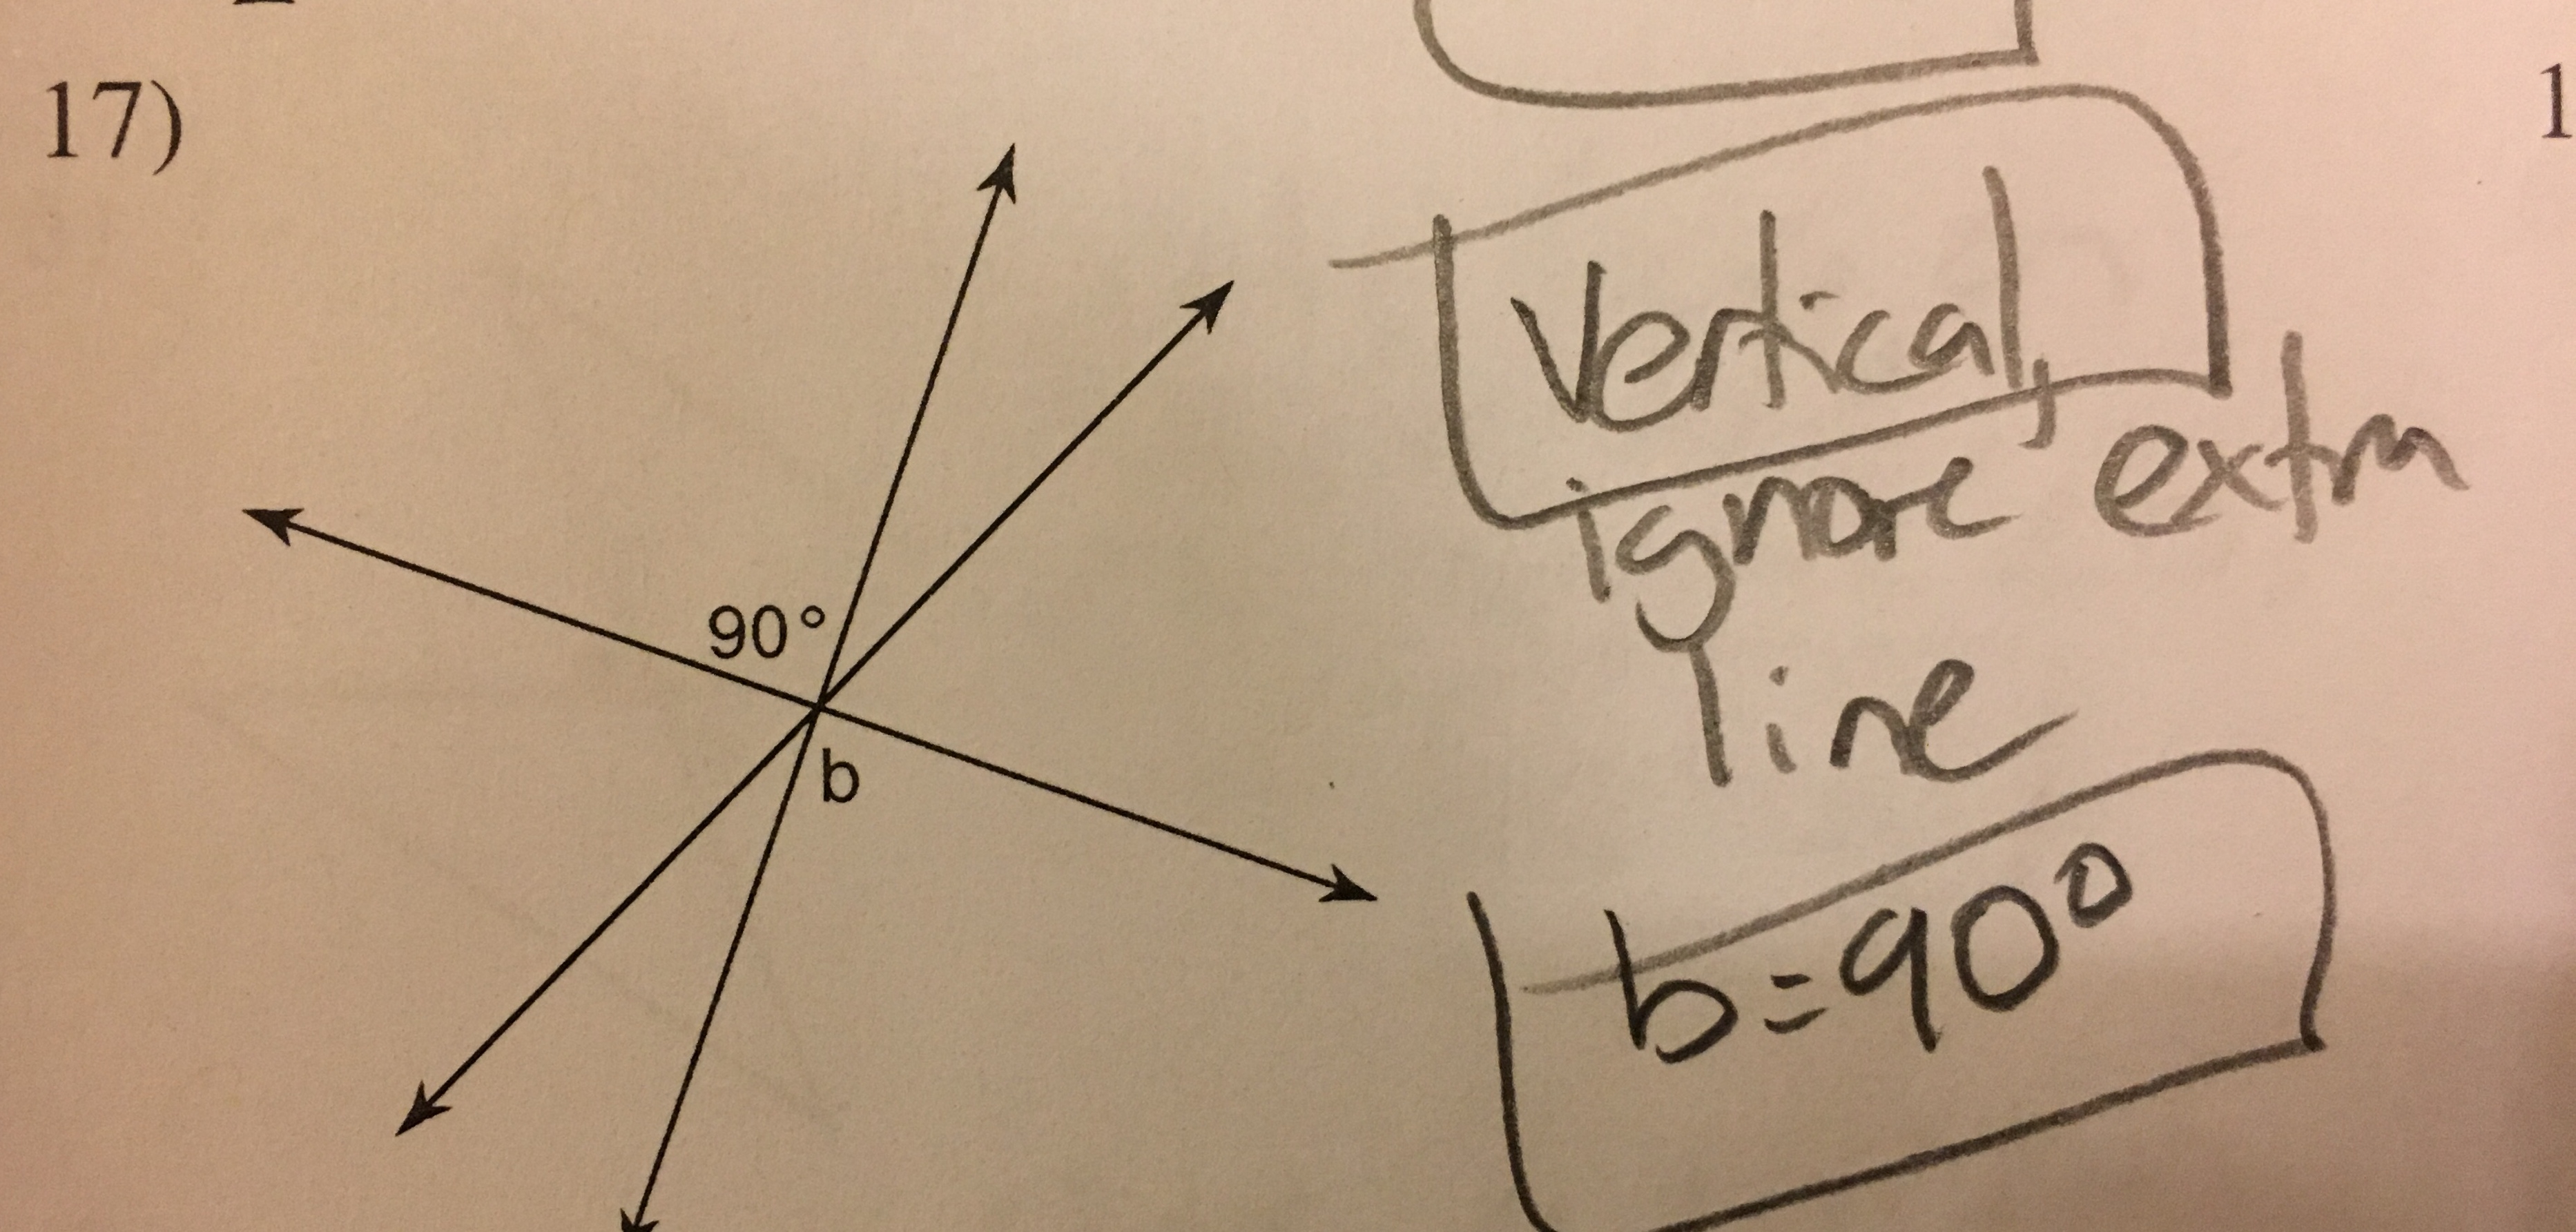 17)
90°
b
Vertical,
ignore extra
line
b=90°
1